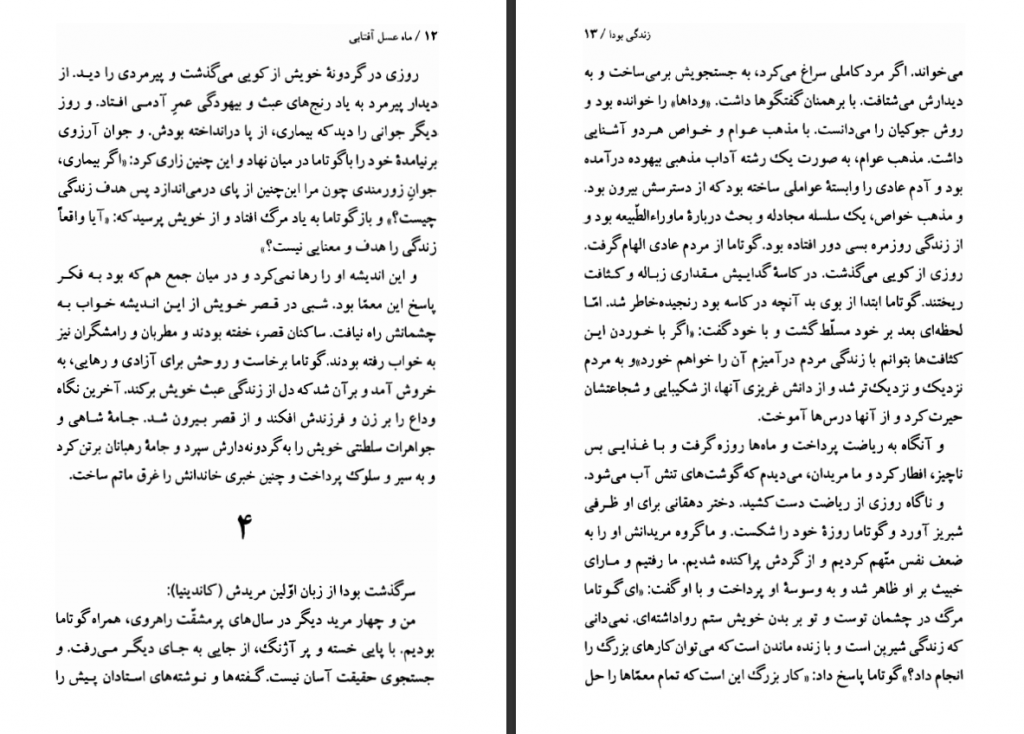 ۱۲ / ماه عسل آفتابی
روزی در گردونهٔ خویش از کویی می‌گذشت و پیرمردی را دید. از
دیدار پیرمرد به یاد رنج‌های عبث و بیهودگی عمرِ آدمی افتاد. و روز
دیگر جوانی را دید که بیماری، از پا درانداخته بودش. و جوان آرزوی
برنیامدهٔ خود را با گوتاما در میان نهاد و این چنین زاری کرد: «اگر بیماری،
جوانِ زورمندی چون مرا این‌چنین از پای درمی‌اندازد پس هدف زندگی
چیست؟» و باز گوتاما به یاد مرگ افتاد و از خویش پرسید که: «آیا واقعاً
زندگی را هدف و معنایی نیست؟»
و این اندیشه او را رها نمی‌کرد و در میان جمع هم که بود به فکر
پاسخ این معمّا بود. شبی در قصر خویش از این اندیشه خواب به
چشمانش راه نیافت. ساکنان قصر، خفته بودند و مطربان و رامشگران نیز
به خواب رفته بودند. گوتاما برخاست و روحش برای آزادی و رهایی، به
خروش آمد و بر آن شد که دل از زندگی عبث خویش برکند. آخرین نگاه
وداع را بر زن و فرزندش افکند و از قصر بیرون شد. جامهٔ شاهی و
جواهرات سلطنتی خویش را به گردونه‌دارش سپرد و جامهٔ رهبانان برتن کرد
و به سیر و سلوک پرداخت و چنین خبری خاندانش را غرق ماتم ساخت.
۴
سرگذشت بودا از زبان اوّلین مریدش (کاندینیا):
من و چهار مرید دیگر در سال‌های پرمشقّت راهروی، همراه گوتاما
بودیم. با پایی خسته و پر آژنگ، از جایی به جای دیگر می‌رفت. و
جستجوی حقیقت آسان نیست. گفته‌ها و نوشته‌های استادان پیش را
زندگی بودا / ۱۳
می‌خواند. اگر مرد کاملی سراغ می‌کرد، به جستجویش برمی‌ساخت و به
دیدارش می‌شتافت. با برهمنان گفتگوها داشت. «وداها» را خوانده بود و
روش جوکیان را می‌دانست. با مذهب عوام و خواص هردو آشنایی
داشت. مذهب عوام، به صورت یک رشته آداب مذهبی بیهوده درآمده
بود و آدم عادی را وابستهٔ عواملی ساخته بود که از دسترسش بیرون بود.
و مذهب خواص، یک سلسله مجادله و بحث دربارهٔ ماوراءالطّبیعه بود و
از زندگی روزمره بسی دور افتاده بود. گوتاما از مردم عادی الهام گرفت.
روزی از کویی می‌گذشت. در کاسهٔ گداییش مقداری زباله و کثافت
ریختند. گوتاما ابتدا از بوی بد آنچه در کاسه بود رنجیده‌خاطر شد. امّا
لحظه‌ای بعد بر خود مسلّط گشت و با خود گفت: «اگر با خوردن این
کثافت‌ها بتوانم با زندگی مردم درآمیزم آن را خواهم خورد» و به مردم
نزدیک و نزدیک‌تر شد و از دانش غریزی آنها، از شکیبایی و شجاعتشان
حیرت کرد و از آنها درس‌ها آموخت.
و آنگاه به ریاضت پرداخت و ماه‌ها روزه گرفت و با غذایی بس
ناچیز، افطار کرد و ما مریدان، می‌دیدم که گوشت‌های تنش آب می‌شود.
و ناگاه روزی از ریاضت دست کشید. دختر دهقانی برای او ظرفی
شیربز آورد و گوتاما روزهٔ خود را شکست. و ما گروه مریدانش او را به
ضعف نفس متّهم کردیم و از گردش پراکنده شدیم. ما رفتیم و مارای
خبیث بر او ظاهر شد و به وسوسهٔ او پرداخت و با او گفت: «ای گوتاما
مرگ در چشمان توست و تو بر بدن خویش ستم رواداشته‌ای. نمی‌دانی
که زندگی شیرین است و با زنده ماندن است که می‌توان کارهای بزرگ را
انجام داد؟» گوتاما پاسخ داد: «کار بزرگ این است که تمام معمّاها را حل